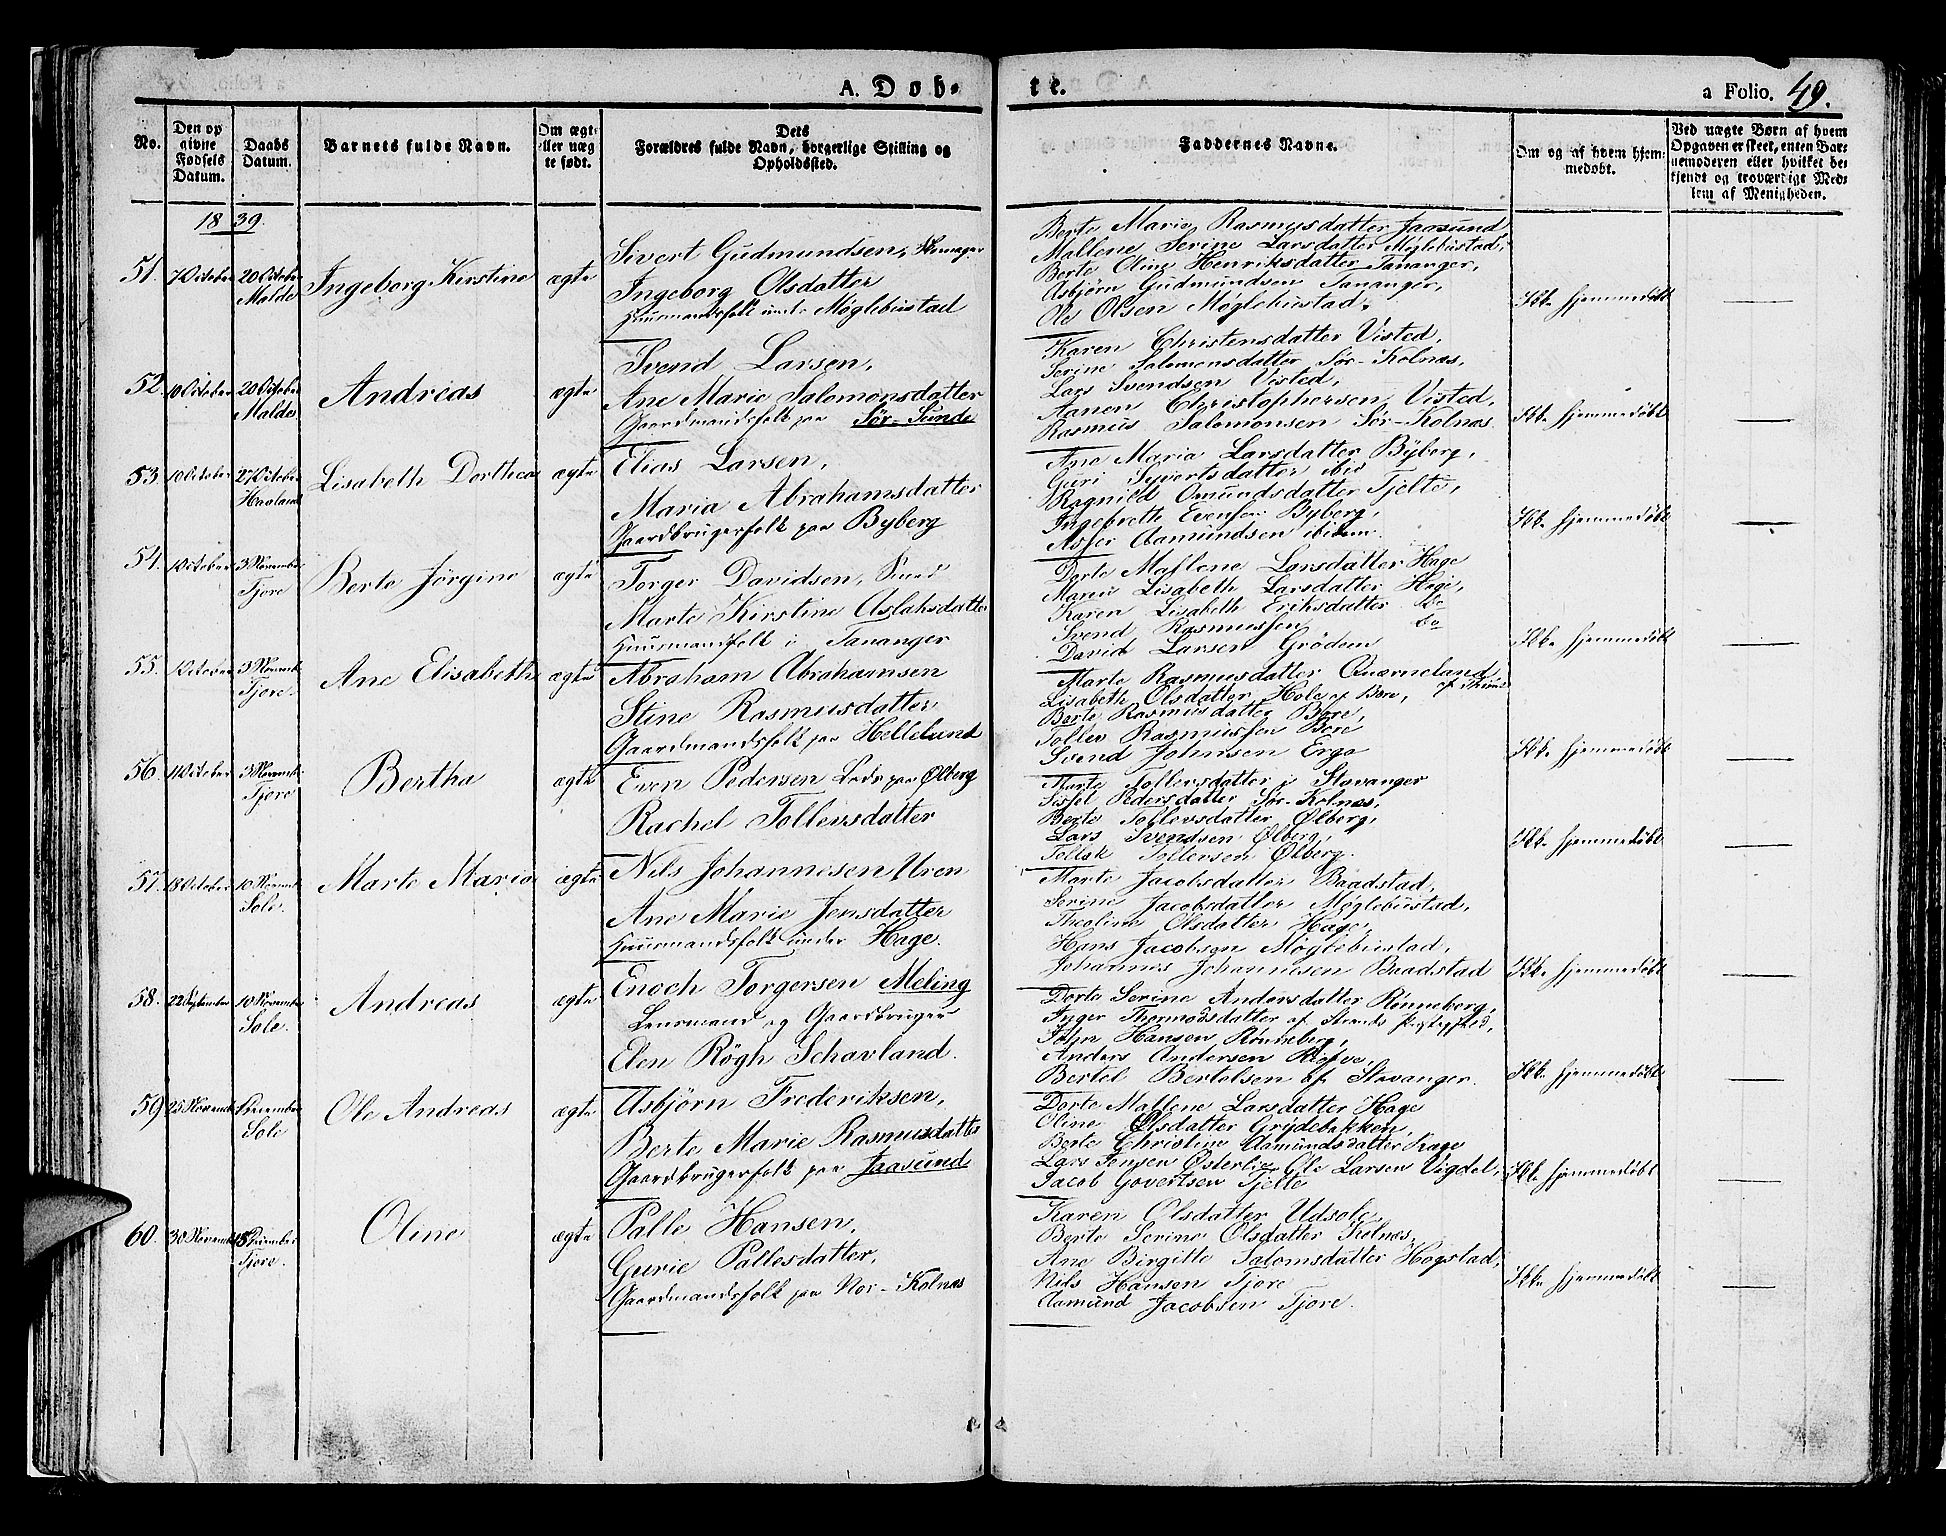 A. Døb-
te.
a Folio. 49.
No.
Den op
givne
Fødsels
Datum.
Daabs
Datum.
Barnets fulde Navn.
Om ægte
eller uæg
te født.
Dets
Forældres fulde Navn, borgerlige Stilling og
Opholdssted.
Faddernes Navne.
Om og af hvem hjem-
medøbt.
Ved uægte Børn af hvem
Opgaven er skeet, enten Bar-
nemoderen eller hvilket be-
kjendt og troværdigt Med-
lem af Menigheden.
1839.
51.
7 October
20 October
Malde
Ingeborg Kirstine
ægte
Sivert Gudmundsen, Skomager
Ingeborg Olsdatter
Huusmandsfolk under Møglebustad
Berte Marie Rasmusdatter Jaasund
Mallene Serine Larsdatter Møglebustad,
Berte Oline Henriksdatter Tananger,
Asbjörn Gudmundsen Tananger,
Ole Olsen Møglebustad.
Ikke hjemmedøbt
52
10 October
20 October
Malde
Andreas
ægte
Svend Larsen,
Ane Marie Salomonsdatter
Gaardmandsfolk paa Sør-Sunde
Karen Christensdatter Visted,
Serine Salomonsdatter Sør-Kolnæs,
Lars Svendsen Visted,
Aanen Christophersen Visted,
Rasmus Salomonsen Sör-Kolnæs.
Ikke hjemmedøbt
53
10 October
27 October
Haaland
Lisabeth Dorthea
ægte
Elias Larsen,
Maria Abrahamsdatter
Gaardbrugerfolk paa Byberg
Ane Maria Larsdatter Byberg,
Guri Syvertsdatter ibid
Ragnild Omundsdatter Tjelte,
Ingebrette Evensen Byberg,
Asser Aamundsen ibidem.
Ikke hjemmedøbt
54.
October
3 Novembe
Tjore
Berte Jørgine
ægte
Torger Davidsen, Smed
Marte Kirstine Aslaksdatter
Huusmandfolk i Tananger
Dorte Mallene Larsdatter Hage
Maria Lisabeth Larsdatter Hage,
Karen Lisabeth Eriksdatter do
Svend Rasmussen do
David Larsen Grödem
Ikke hjemmedøbt
55.
October
3 Novemb
Tjore.
Ane Elisabeth
ægte
Abraham Abrahamsen
Stine Rasmusdatter
Gaardmandsfolk paa Hellelund
Marte Rasmusdatter Qværneland
Lisabeth Olsdatter Hole af Bore,
Berte Rasmusdatter Bore,
Tollev Rasmussen Bore
Svend Johnsen Erga
Ikke hjemmedøbt
56
11 October
3 Novemb
Tjore
Bertha
ægte
Even Pedersen Lods paa Ølberg
Rachel Tollevsdatter
Marte Tollevsdatter i Stavanger
Sissel Pedersdatter Sør-Kolnæs,
Berte Tollevsdatter Ølberg,
Lars Svendsen Ølberg,
Tollak Tollevsen Ølberg.
Ikke hjemmedøbt
57.
18 October
10 Novemb
Sole.
Marte Maria
ægte
Nils Johannesen Uren
Ane Marie Jensdatter
Huusmandsfolk under Hage.
Marte Jacobsdatter Baadstad,
Serine Jacobsdatter Møglebustad,
Thealine Olsdatter Hage,
Hans Jacobsen Møglebustad,
Johannes Johannesen Baadstad
Ikke hjemmedøbt
58.
22 September
10 Novemb
Sole.
Andreas
ægte
Enoch Torgersen Meling
Lensmand og Gaardbruger
Elen Røgh Schavland.
Dorte Serine Andersdatter Rönneberg,
Inger Thormodsdatter af Strands Præstegjeld,
John Hansen Rönneberg,
Anders Andersen
Bertel Bertelsen af Stavanger.
Ikke hjemmedøbt
59
25 Novemb
December
Sole
Ole Andreas
ægte
Asbjörn Frederiksen,
Berte Marie Rasmusdatter
Gaardbrugerfolk paa Jaasund
Dorte Mallene Larsdatter Hage
Oline Olsdatter Grydebakken,
Berte Christine Aamundsdatter Hage
Lars Jensen Østerlie Ole Larsen Vigdel,
Jacob Govertsen Tjelte
Ikke hjemmedøbt
60.
30 Novemb
December
Tjore.
Oline
ægte
Palle Hansen,
Gurie Pallesdatter,
Gaardmandsfolk paa Nor-Kolnæs
Karen Olsdatter Udsole,
Berte Serine Olsdatter Kolnæs,
Ane Birgitte Salomsdatter Hogstad,
Nils Hansen Tjore
Aamund Jacobsen Tjore.
Ikke hjemmedøbt